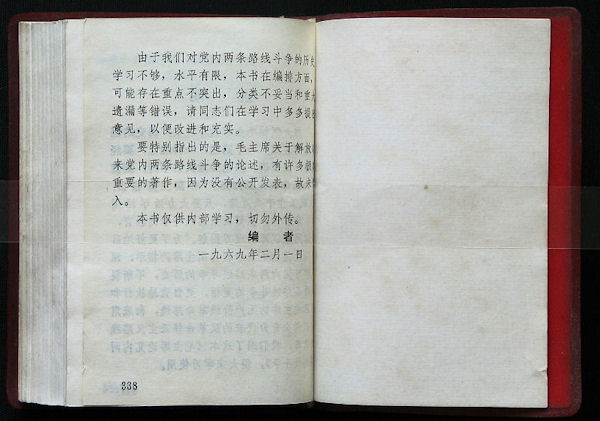 由于我们对党内两条路线斗争的历史
学习不够，水平有限，本书在编排方面，
可能存在重点不突出，分类不妥当和重大
遗漏等错误，请同志们在学习中多多提
意见，以便改进和充实。
要特别指出的是，毛主席关于解放
来党内两条路线斗争的论述，有许多
重要的著作，因为没有公开发表，故未
入。
本书仅供内部学习，切勿外传。
编 者
一九六九年二月一日
338